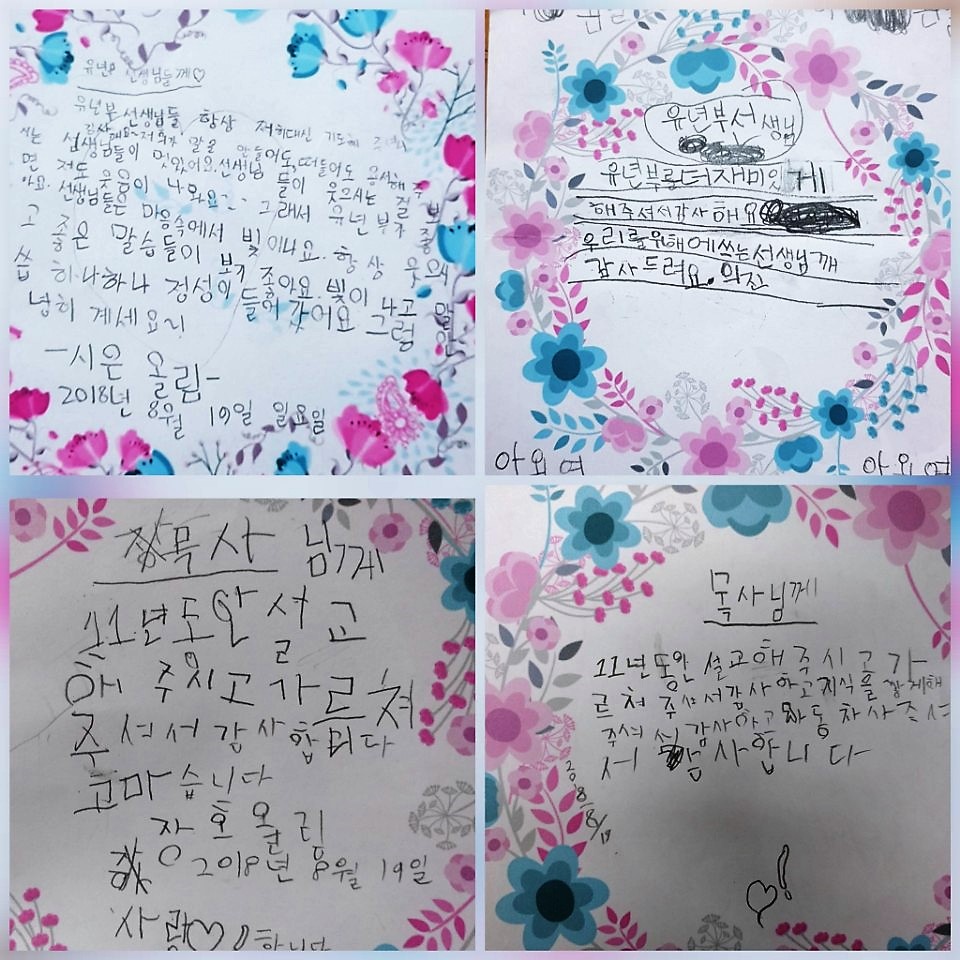 유년부 선생님들께♡
유년부 선생님들 항상 저희대신 기도해 주
선생님들이 멋있어요. 선생님 들이 웃으시는 걸 보
면 저도 웃음이 나와요~ 그래서 유년부가 좋
아요. 선생님들은 마음속에서 빛이나요. 항상
고 좋은 말씀들이 보기 좋아요. 빛이 나고 말
씀 하나하나 정성이 들어 갔어요 그럼 안
녕히 계세요
-시은 올림-
2018년 8월 19일 일요일
유년부선생님
유년부를더재미있게
해주셔서감사해요
우리를위해에쓰는선생님께
감사드려요.
아외여
아외여
목사님께
11년도안 설교
해 주시고 가르쳐
주셔서 감사합니다
고마습니다
장호올림
2018년 8월 19일
사랑♡합니다
목사님께
11년동안 설교해 주시고 가
르쳐 주셔서감사하고지식을 쌓게해
주셔서 감사하고 자동차사주셔
서 감사합니다
2018/8/19
♡!